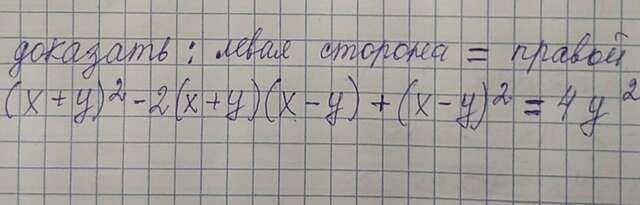 доказать: левая сторона = правой
(x+y)²-2(x+y)(x-y)+(x-y)²=4y²